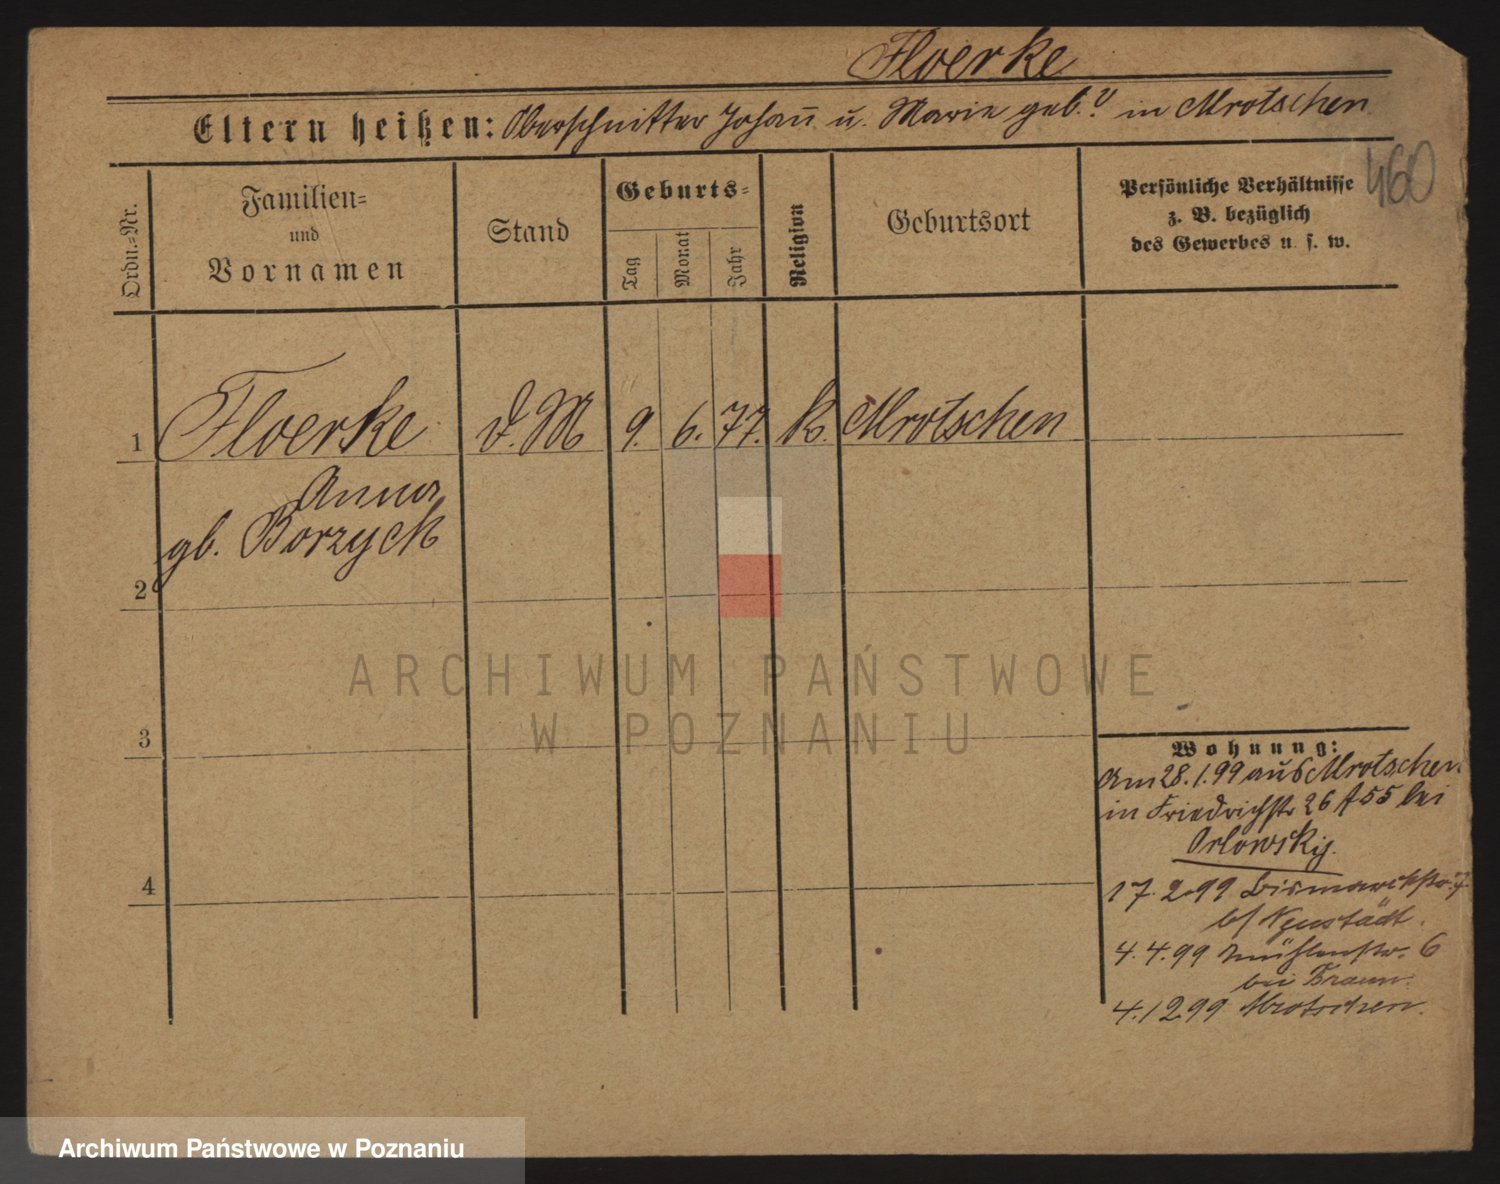 Floerke
Eltern heißen: Oberschnitter Johañ u. Marie geb.? in Mrotschen
460
Ordn.=Nr.
Familien=
und
Vornamen
Stand
Geburts=
Tag
Monat
Jahr
Religion
Geburtsort
Persönliche Verhältnisse
z. B. bezüglich
des Gewerbes u. s. w.
1 Floerke d. M 9. 6. 77. k. Mrotschen
Anna
gb. Borzyck
2
3
4
Wohnung:
Am 28.1.99 aus Mrotschen
in Friedrichstr 26 bei
Orlowsky.
17.2.99 Bismarckstr. 7
b/ Neustädt.
4.4.99 Mühlenstr. 6
bei Braun.
4.12 99 Mrotschen.
ARCHIWUM PAŃSTWOWE
W POZNANIU
Archiwum Państwowe w Poznaniu